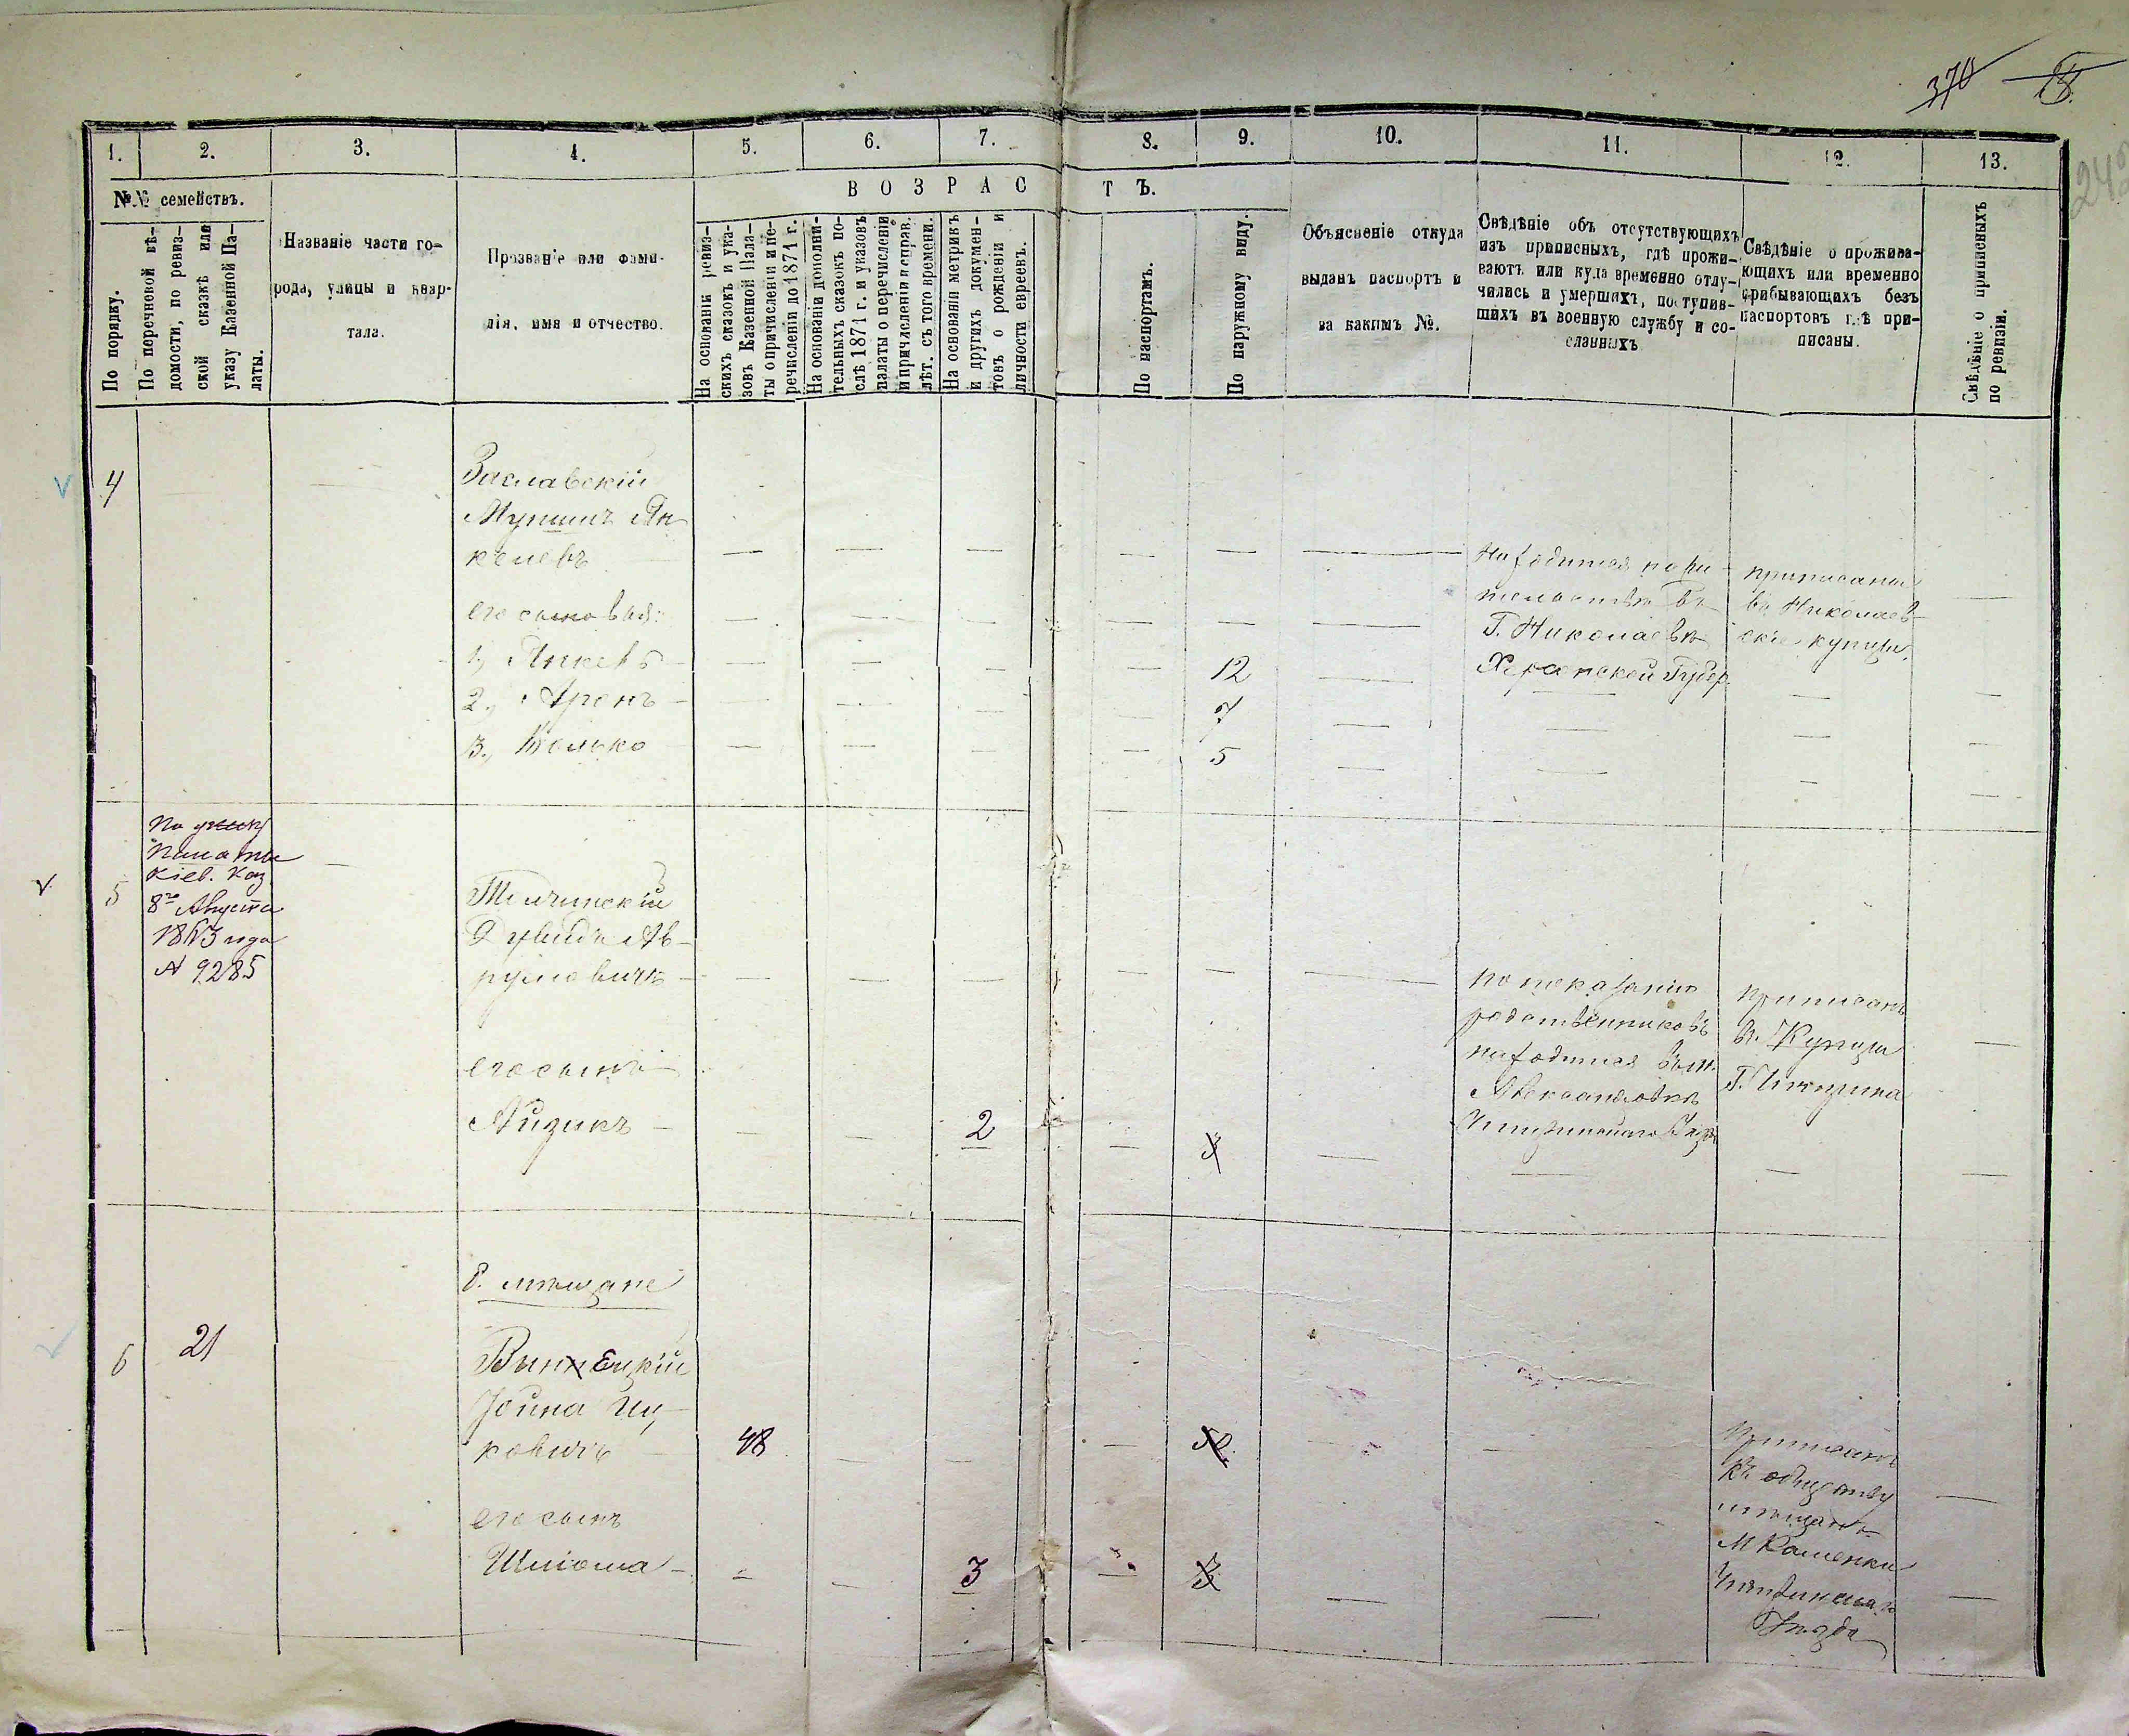 370
1.
2.
3.
4.
5.
6.
7.
8.
9.
10.
11.
12.
13.
№№ семействъ.
ВОЗРАСТЪ.
По порядку.
По перечневой вѣ-
домости, по ревиз-
ской сказкѣ или
указу Казенной Па-
латы.
Названіе части го-
рода, улицы и квар-
тала.
Прозваніе или фами-
лія, имя и отчество.
На основаніи ревиз-
скихъ сказокъ и ука-
зовъ Казенной Пала-
ты о причисленіи и пе-
речисленіи до 1871 г.
На основаніи дополни-
тельныхъ сказокъ по-
слѣ 1871 г. и указовъ
палаты о перечисленіи
и причисленіи и справ.
лѣт. съ того времени.
На основаніи метрикъ
и другихъ докумен-
товъ о рожденіи и
личности евреевъ.
По паспортамъ.
По наружному виду.
Объясненіе откуда
выданъ паспортъ и
за какимъ №.
Свѣдѣніе объ отсутствующихъ
изъ приписныхъ, гдѣ прожи-
ваютъ или куда временно отлу-
чились и умершихъ, поступив-
шихъ въ военную службу и со-
сланныхъ
Свѣдѣніе о прожива-
ющихъ или временно
прибывающихъ безъ
паспортовъ гдѣ при-
писаны.
Свѣдѣніе о приписныхъ
по ревизіи.
4
Заславскій
Мунишъ Ян-
келевъ
его сыновья:
1, Янкель
2., Аронъ
3., Только
12
7
5
Находится на жи-
тельствѣ въ
Г. Николаевѣ
Херсонской Губер.
приписаны
въ Николаев-
скіе купцы.
5
По указу
Палаты
Кіев. Каз
8го Августа
1873 года
№ 9285
Дувидъ Ав-
румовичъ
его сынъ
Айзикъ
2
3
по показанію
родственниковъ
находится въ м.
Александровкѣ
Чигиринскаго Уѣзда
приписанъ
въ Купцы
Г. Чигирина
Е. мѣщане
6
21
Виннецкій
Іойна Иц-
ковичъ
48
50
его сынъ
Шліома
3
3
Приписанъ
къ обществу
мѣщанъ
М Каменки
Чигиринскаго
Уѣзда